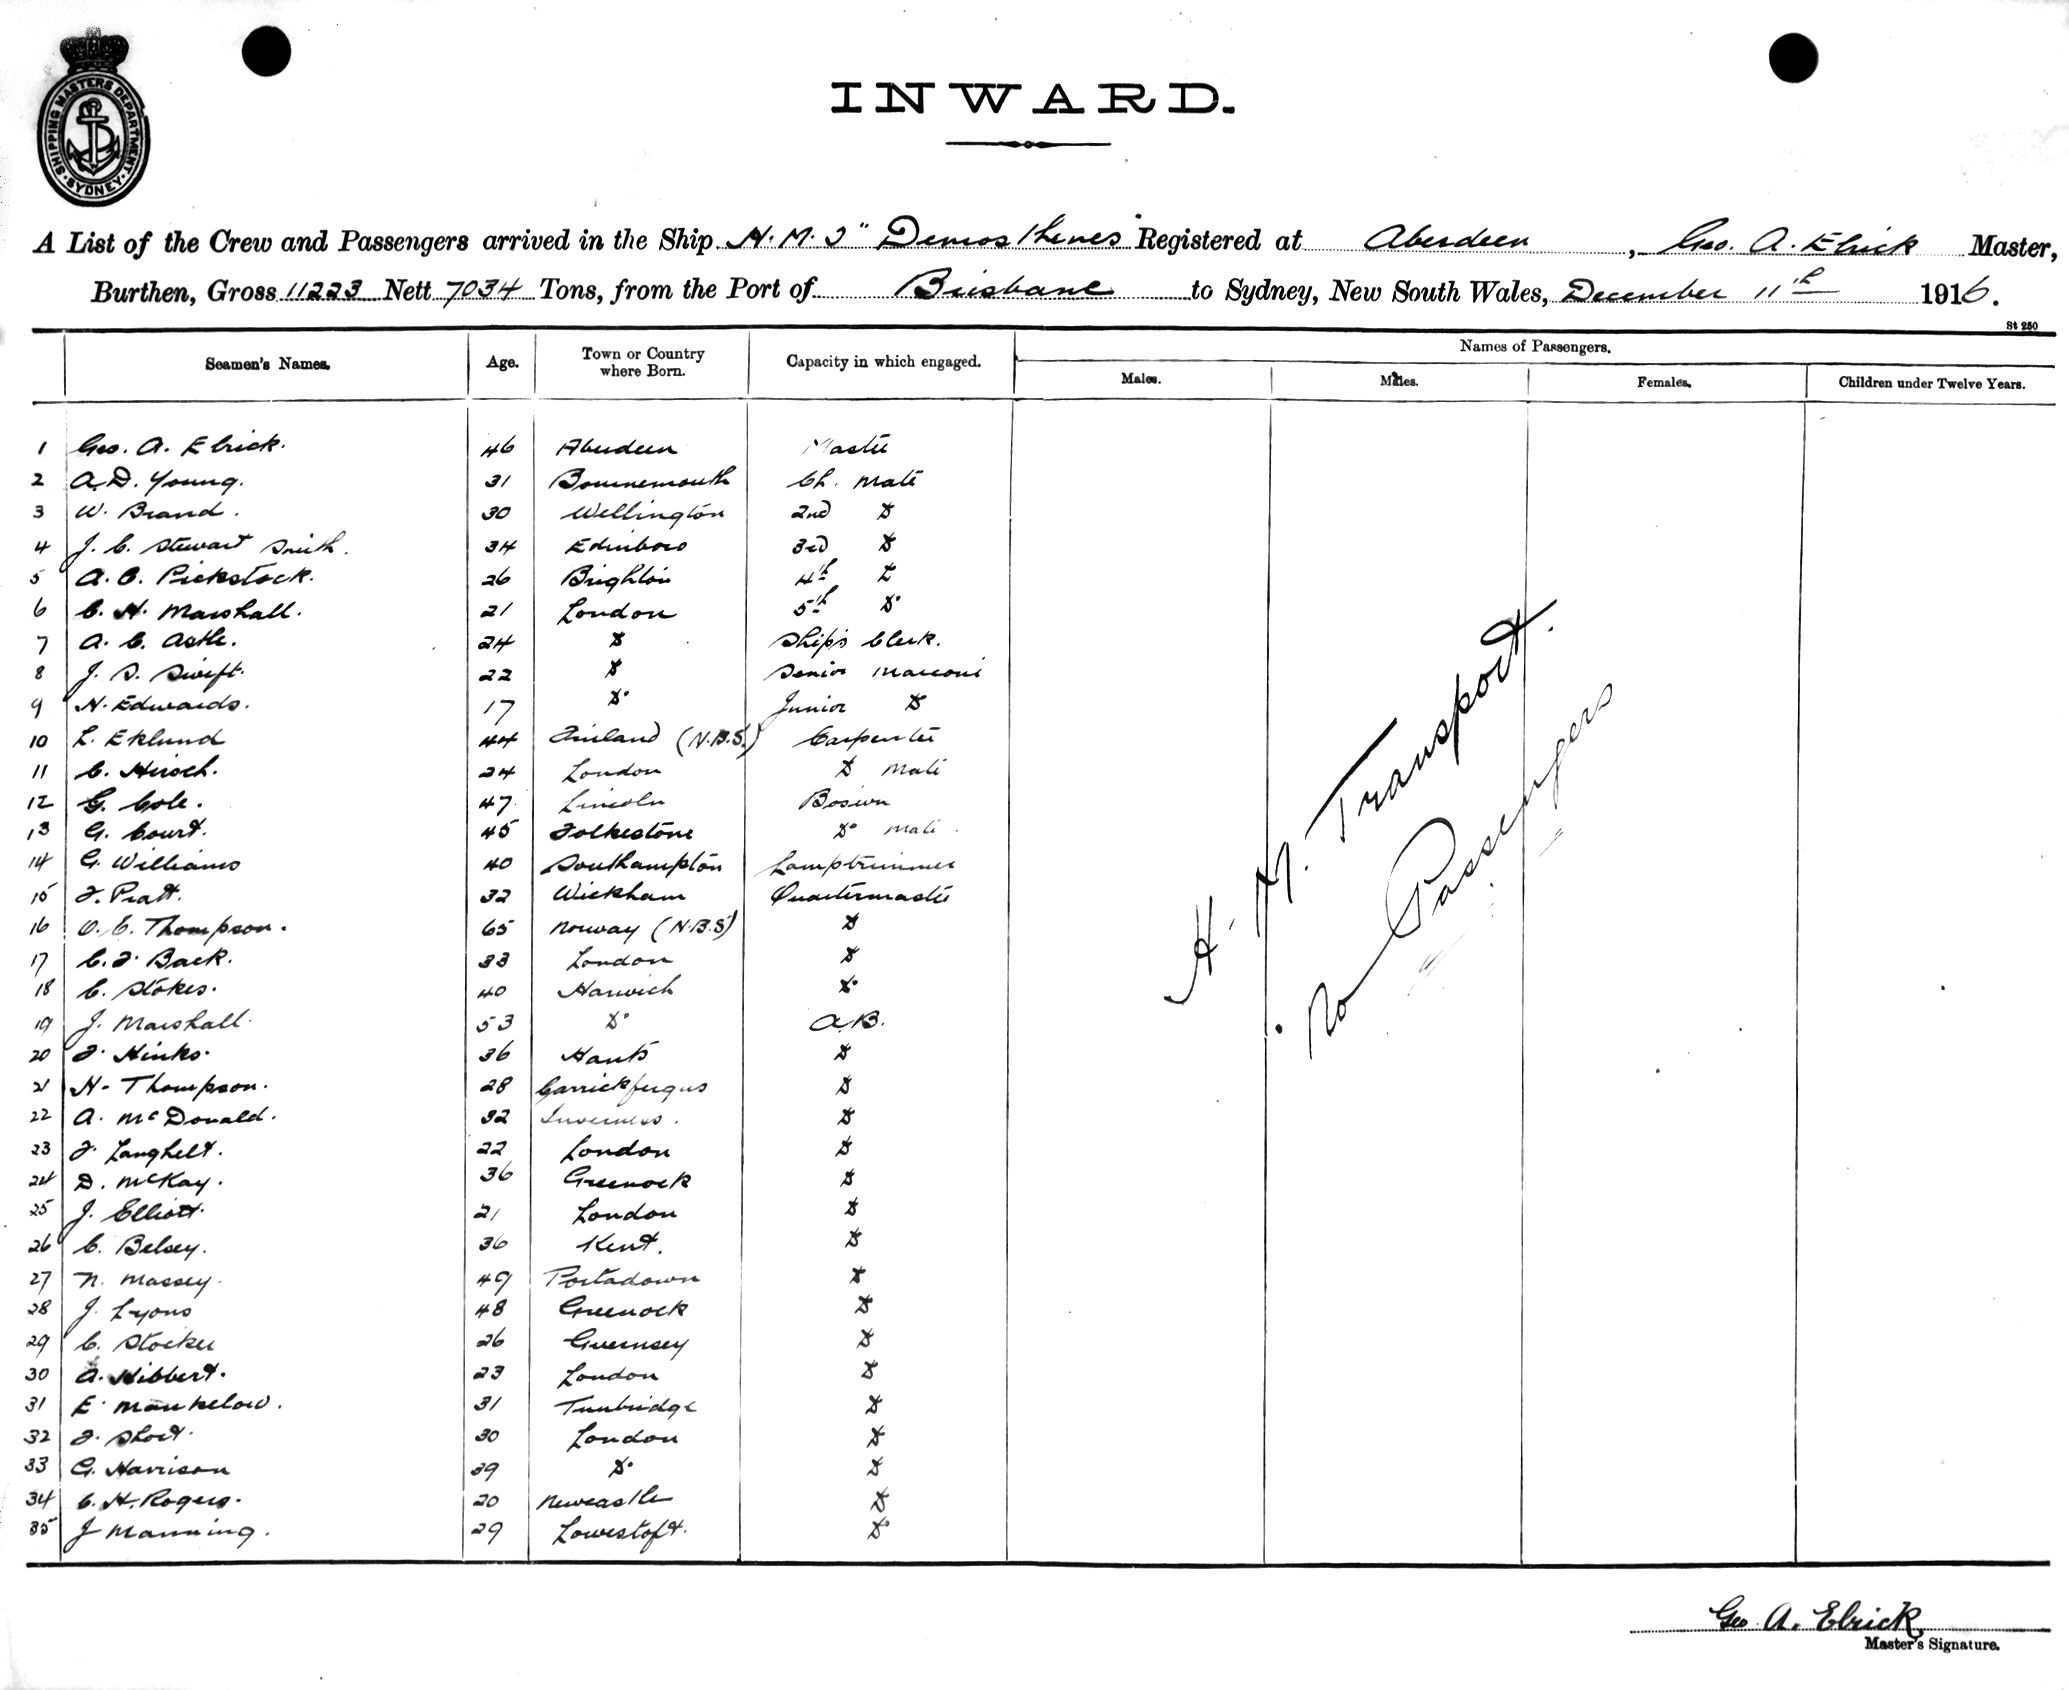 SHIPPING MASTERS DEPARTMENT SYDNEY
INWARD.
A List of the Crew and Passengers arrived in the Ship H. M. T "Demosthenes" Registered at Aberdeen, Geo. A. Elrick Master,
Burthen, Gross 11223 Nett 7034 Tons, from the Port of Brisbane to Sydney, New South Wales, December 11th 1916.
St 250
Seamen's Names. Age. Town or Country where Born. Capacity in which engaged. Names of Passengers.
Males. Males. Females. Children under Twelve Years.
1 Geo. A. Elrick. 46 Aberdeen Master
2 A. D. Young. 31 Bournemouth Ch. Mate
3 W. Brand. 30 Wellington 2nd Do
4 J. C. Stewart Smith. 34 Edinboro 3rd Do
5 A. C. Pickstock. 26 Brighton 4th Do
6 C. H. Marshall. 21 London 5th Do
7 A. C. Astle. 24 Do Ships Clerk.
8 J. S. Swift. 22 Do Senior Marconi
9 H. Edwards. 17 Do Junior Do
10 L. Eklund 44 Finland (N.B.S.) Carpenter
11 C. Hirsch. 24 London Do Mate
12 G. Cole. 47 Lincoln Bosun
13 G. Court. 45 Folkestone Do Mate
14 G. Williams 40 Southampton Lamptrimmer
15 F. Pratt. 32 Wickham Quartermaster
16 O. C. Thompson. 65 Norway (N.B.S) Do
17 C. F. Back. 33 London Do
18 C. Stokes. 40 Harwich Do
19 J. Marshall. 53 Do A.B.
20 F. Hinks. 36 Hants Do
21 H. Thompson. 28 Carrickfergus Do
22 A. McDonald. 32 Inverness. Do
23 F. Langhelt. 22 London Do
24 D. McKay. 36 Greenock Do
25 J. Elliott. 21 London Do
26 C. Belsey. 36 Kent. Do
27 N. Massey. 49 Portadown Do
28 J. Lyons 48 Greenock Do
29 C. Stocker 26 Guernsey Do
30 A. Hibbert. 23 London Do
31 E. Mankelow. 31 Tunbridge Do
32 F. Short. 30 London Do
33 G. Harrison 39 Do Do
34 C. H. Rogers. 20 Newcastle Do
35 J Manning. 29 Lowestoft. Do
H. M. Transport.
No Passengers
Geo A. Elrick
Master's Signature.